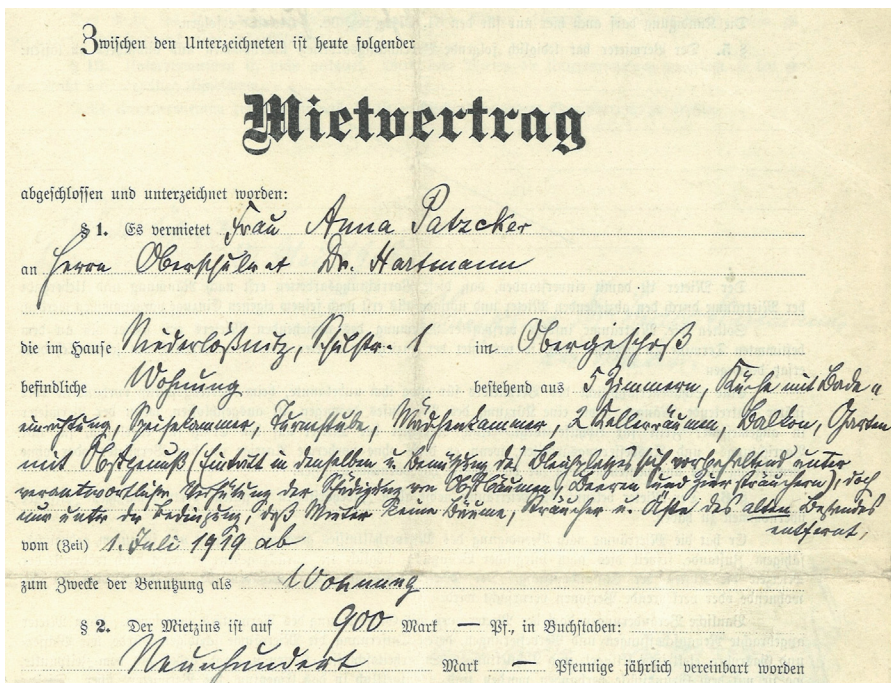 Zwischen den Unterzeichneten ist heute folgender
Mietvertrag
abgeschlossen und unterzeichnet worden:
§ 1. Es vermietet Frau Anna Patzcker
an Herrn Oberschulrat Dr. Hartmann
die im Hause Niederlößnitz, Schulstr. 1 im Obergeschoß
befindliche Wohnung bestehend aus 5 Zimmern, Küche mit Bade
einrichtung, Speisekammer, Turmstube, Mädchenkammer, 2 Kellerräumen, Balkon, Garten
mit Obstgenuß (Eintritt in denselben u. Benützung des Bleichplatzes sich vorbehaltend unter
verantwortlicher Verhütung der Schädigung von Obstbäumen, Beeren und Ziersträuchern), doch
nur unter der Bedingung, daß Mieter keine Bäume, Sträucher u. Äste des alten Bestandes
entfernt,
vom (Zeit) 1. Juli 1919 ab
zum Zwecke der Benutzung als Wohnung
§ 2. Der Mietzins ist auf 900 Mark — Pf., in Buchstaben:
Neunhundert Mark — Pfennige jährlich vereinbart worden